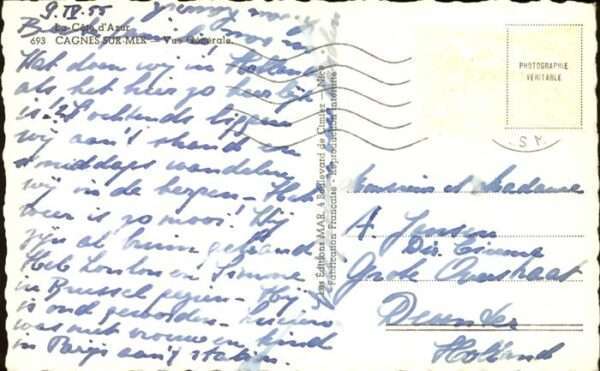 9. IV. 55
La Côte d'Azur
693 CAGNES-SUR-MER — Vue Générale.
Wat doen wij in Holland
als het hier zo heerlijk
is! 's ochtends liggen
wij aan 't strand en
's middags wandelen
wij in de bergen - Het
weer is zo mooi! Wij
zijn al bruin gebrand
en Simone
in Brussel gezien - Hij
is oud geworden -
was met vrouw en kind
in Parijs aan 't station.
Les Editions MAR, Boulevard de Cimiez - Nice
Fabrication Française - Reproduction Interdite
PHOTOGRAPHIE
VÉRITABLE
Monsieur et Madame
A. Jansen
Grote Overstraat
Deventer
Holland